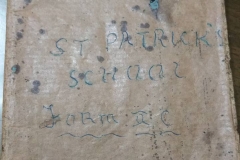 ST PATRICK'S
SCHOOL
FORM II C